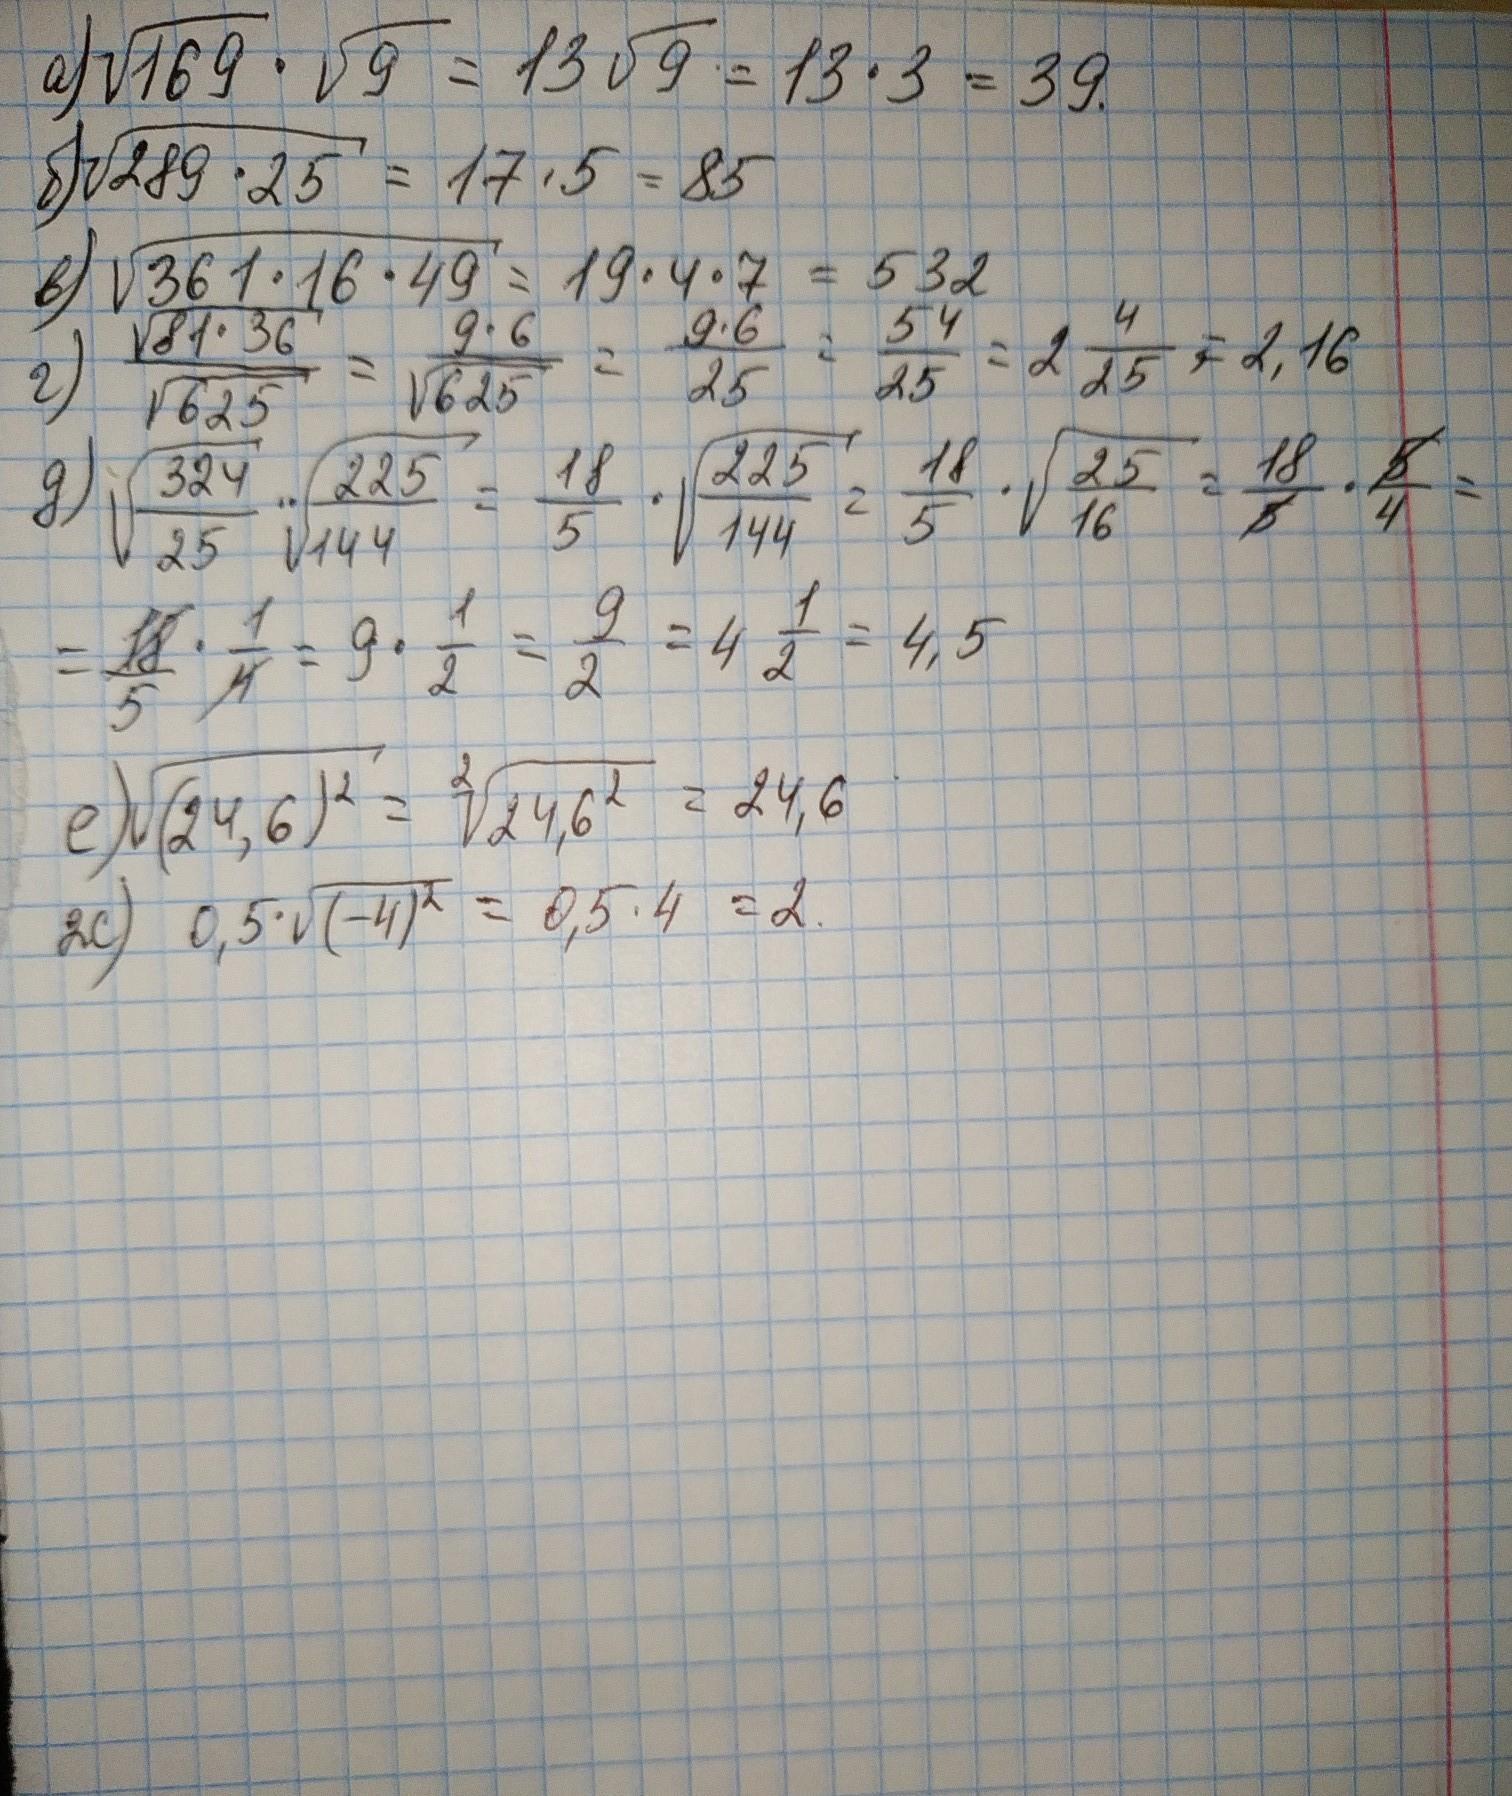 а) √169 · √9 = 13√9 = 13·3 = 39.
б) √289·25 = 17·5 = 85
в) √361·16·49 = 19·4·7 = 532
г) √81·36/√625 = 9·6/√625 = 9·6/25 = 54/25 = 2 4/25 = 2,16
д) √324/25 ·· √225/√144 = 18/5 · √225/144 = 18/5 · √25/16 = 18/5 · 5/4 =
= 18/5 · 1/4 = 9 · 1/2 = 9/2 = 4 1/2 = 4,5
е) √(24,6)² = ²√24,6² = 24,6
ж) 0,5·√(-4)² = 0,5·4 = 2.